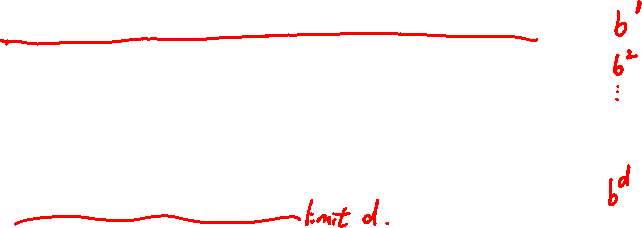 b¹
b²
⋮
b^d
limit d.